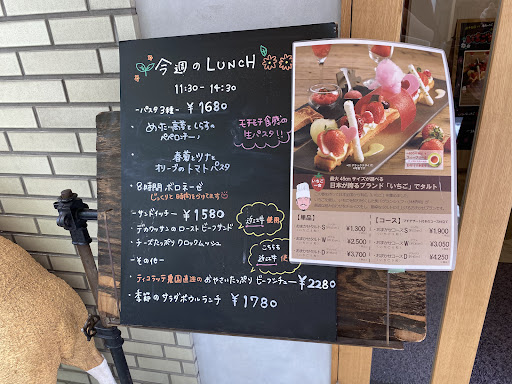 今週のLUNCH
11:30 - 14:30
-パスタ3種- ¥1680
・めんたい高菜としらすの
ペペロンチーノ
モチモチ食感の
生パスタ!!
・春菊とツナと
オリーブのトマトパスタ
・8時間ボロネーゼ
じっくり8時間かけてます
-サンドイッチ- ¥1580
近江牛使用
・デカワッサンのローストビーフサンド
・チーズたっぷりクロックムッシュ
こちらも
近江牛使用
-その他-
・ティコラッテ農園直送のおやさいたっぷりビーフシチュー ¥2280
・季節のサラダボウルランチ ¥1780
いちご
一会
最大46cmサイズが選べる
日本が誇るブランド「いちご」でタルト!
【単品】
S ¥1,300
W ¥2,400
D ¥3,700
【コース】
S ¥1,900
W ¥3,050
D ¥4,250